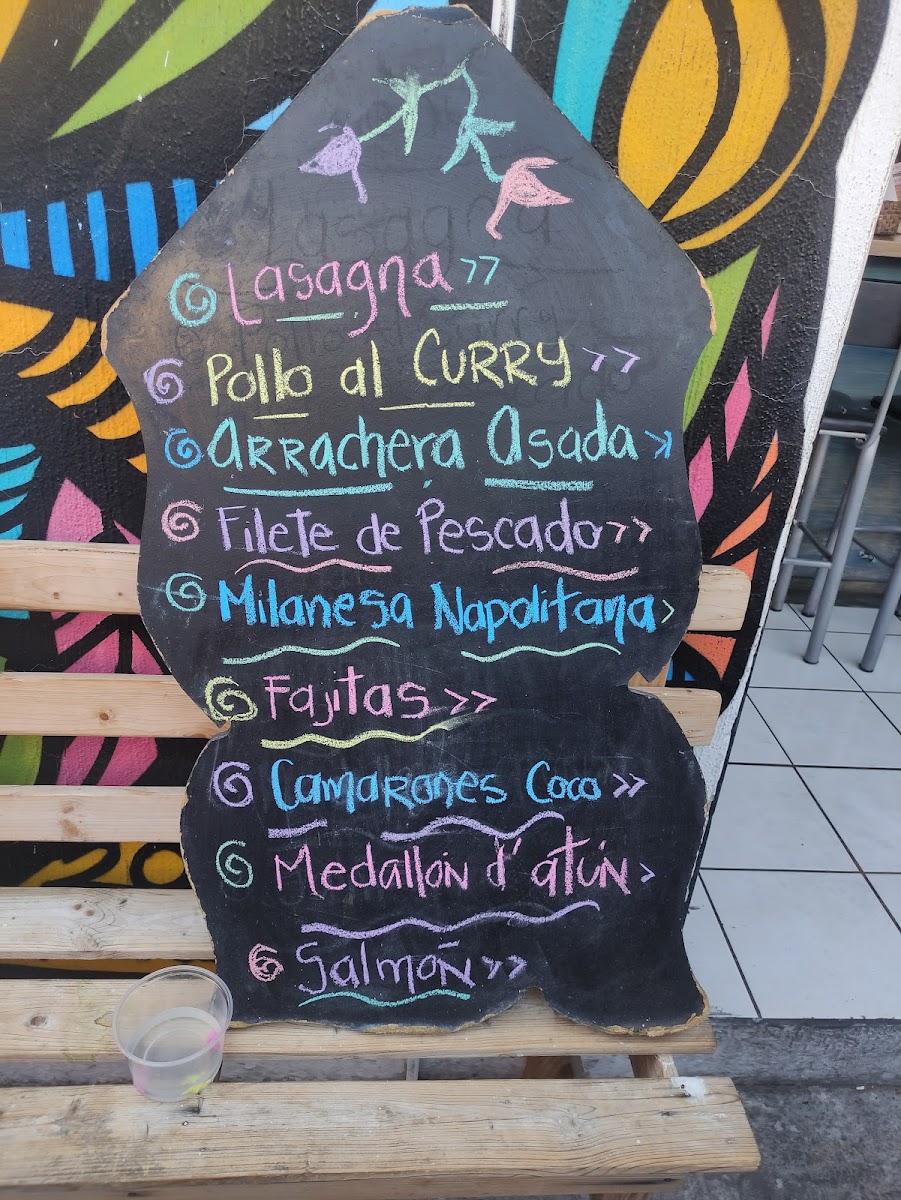 Lasagna >>
Pollo al CURRY >>
ARRachera Asada >
Filete de Pescado >>
Milanesa Napolitana >
Fajitas >>
Camarones Coco >>
Medallón d'atún >
Salmoñ >>